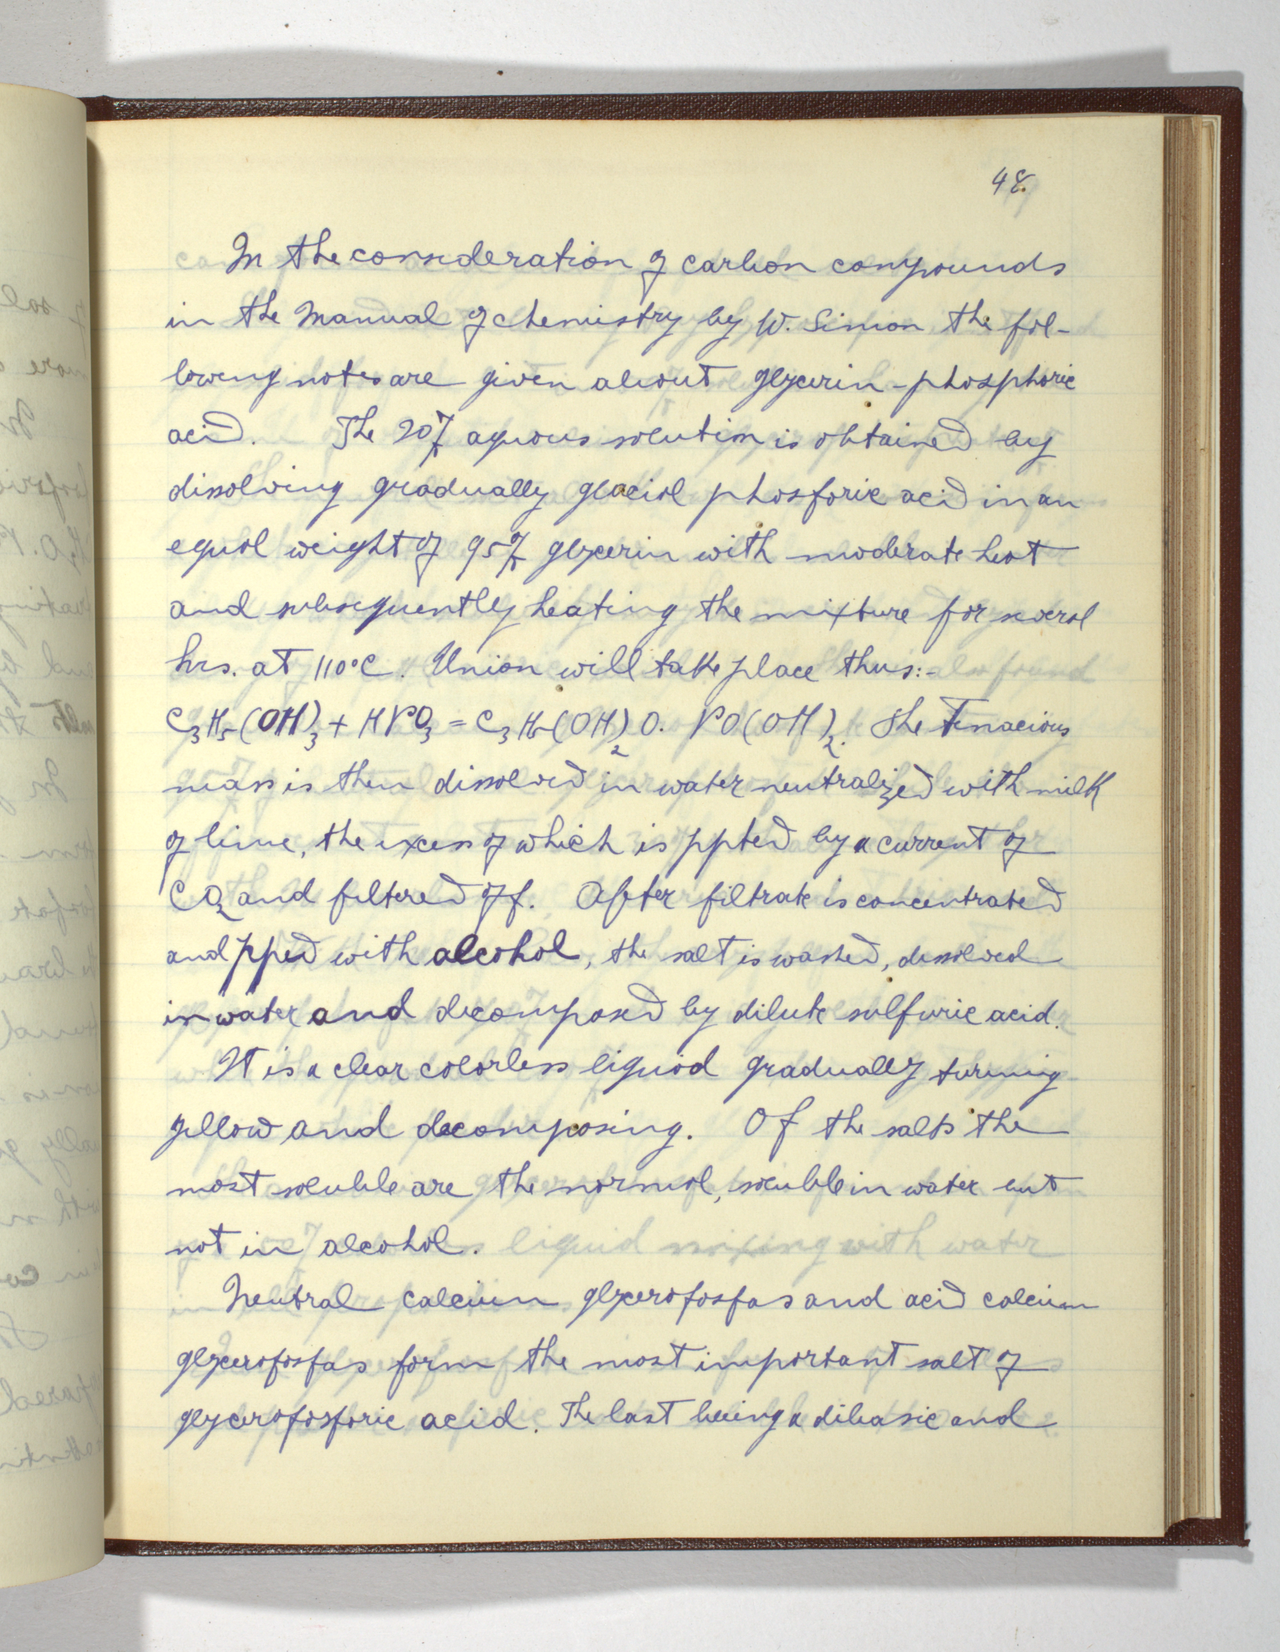 48.
In the consideration of carbon compounds
in the Manual of chemistry by W. Simon the fol-
lowing notes are given about glycerin-phosphoric
acid. The 20% aquous solution is obtained by
dissolving gradually glacial phosforic acid in an
equal weight of 95% glycerin with moderate heat
and subsequently heating the mixture for several
hrs. at 110°C. Union will take place thus:-
C₃H₅(OH)₃ + HPO₃ = C₃H₅(OH)₂O. PO(OH)₂. The tenacious
mass is then dissolved in water neutralized with milk
of lime, the excess of which is ppted by a current of
CO₂ and filtered off. After filtrate is concentrated
and pped with alcohol, the salt is washed, dissolved
in water and decomposed by dilute sulfuric acid.
It is a clear colorless liquid gradually turning
yellow and decomposing. Of the salts the
most soluble are the normal, soluble in water but
not in alcohol.
Neutral calcium glycerofosfas and acid calcium
glycerofosfas form the most important salt of
glycerofosforic acid. The last being a dibasic and